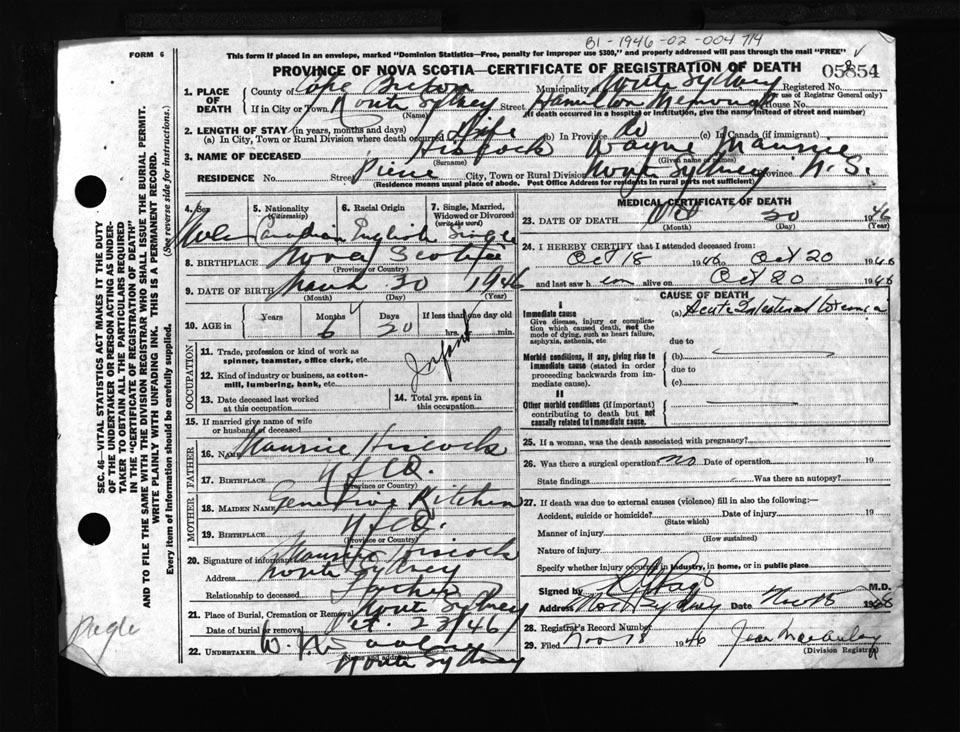 B1-1946-02-004714
FORM 6
This form if placed in an envelope, marked "Dominion Statistics—Free, penalty for improper use $300," and properly addressed will pass through the mail "FREE"
PROVINCE OF NOVA SCOTIA—CERTIFICATE OF REGISTRATION OF DEATH
05854
1. PLACE OF DEATH
County of Cape Breton Municipality of North Sydney Registered No.
(For use of Registrar General only)
If in City or Town North Sydney Street Hamilton Memorial House No.
(Name) (If death occurred in a hospital or institution, give the name instead of street and number)
2. LENGTH OF STAY (in years, months and days)
(a) In City, Town or Rural Division where death occurred Life (b) In Province Do (c) In Canada (if immigrant)
3. NAME OF DECEASED Hiscock Wayne Maurice
(Surname) (Given name or names)
RESIDENCE No. Street Pierce City, Town or Rural Division North Sydney Province N.S.
(Residence means usual place of abode. Post Office Address for residents in rural parts not sufficient)
4. Sex Male
5. Nationality (Citizenship) Canadian
6. Racial Origin English
7. Single, Married, Widowed or Divorced (write the word) Single
8. BIRTHPLACE Nova Scotia
(Province or Country)
9. DATE OF BIRTH March 30 1946
(Month) (Day) (Year)
10. AGE in Years Months 6 Days 20 If less than one day old hrs. min.
OCCUPATION
11. Trade, profession or kind of work as spinner, teamster, office clerk, etc.
Infant
12. Kind of industry or business, as cotton-mill, lumbering, bank, etc.
13. Date deceased last worked at this occupation
14. Total yrs. spent in this occupation
15. If married give name of wife or husband of deceased
FATHER
16. NAME Maurice Hiscock
17. BIRTHPLACE Nfld.
(Province or Country)
MOTHER
18. MAIDEN NAME Genevieve Kitchen
19. BIRTHPLACE Nfld.
(Province or Country)
20. Signature of informant Maurice Hiscock
Address North Sydney
Relationship to deceased Father
21. Place of Burial, Cremation or Removal North Sydney
Date of burial or removal Oct. 23 '46
22. UNDERTAKER W. N.
North Sydney
MEDICAL CERTIFICATE OF DEATH
23. DATE OF DEATH Oct 20 1946
(Month) (Day) (Year)
24. I HEREBY CERTIFY that I attended deceased from:
Oct 18 1946 to Oct 20 1946
and last saw h im alive on Oct 20 1946
CAUSE OF DEATH
I
Immediate cause
Give disease, injury or complication which caused death, not the mode of dying, such as heart failure, asphyxia, asthenia, etc
(a) Acute Intestinal
due to
Morbid conditions, if any, giving rise to immediate cause (stated in order proceeding backwards from immediate cause).
(b)
due to
(c)
II
Other morbid conditions (if important) contributing to death but not causally related to immediate cause.
25. If a woman, was the death associated with pregnancy?
26. Was there a surgical operation? no Date of operation 19
State findings Was there an autopsy?
27. If death was due to external causes (violence) fill in also the following:—
Accident, suicide or homicide? Date of injury 19
(State which)
Manner of injury
(How sustained)
Nature of injury
Specify whether injury occurred in industry, in home, or in public place
Signed by M.D.
Address North Sydney Date Nov 18 1946
28. Registrar's Record Number
29. Filed Nov 18 1946 Jean MacAulay
(Division Registrar)
SEC. 46—VITAL STATISTICS ACT MAKES IT THE DUTY
OF THE UNDERTAKER OR PERSON ACTING AS UNDERTAKER
TO OBTAIN ALL THE PARTICULARS REQUIRED
IN THE "CERTIFICATE OF REGISTRATION OF DEATH"
AND TO FILE THE SAME WITH THE DIVISION REGISTRAR WHO SHALL ISSUE THE BURIAL PERMIT.
WRITE PLAINLY WITH UNFADING INK. THIS IS A PERMANENT RECORD.
Every item of Information should be carefully supplied. (See reverse side for instructions.)